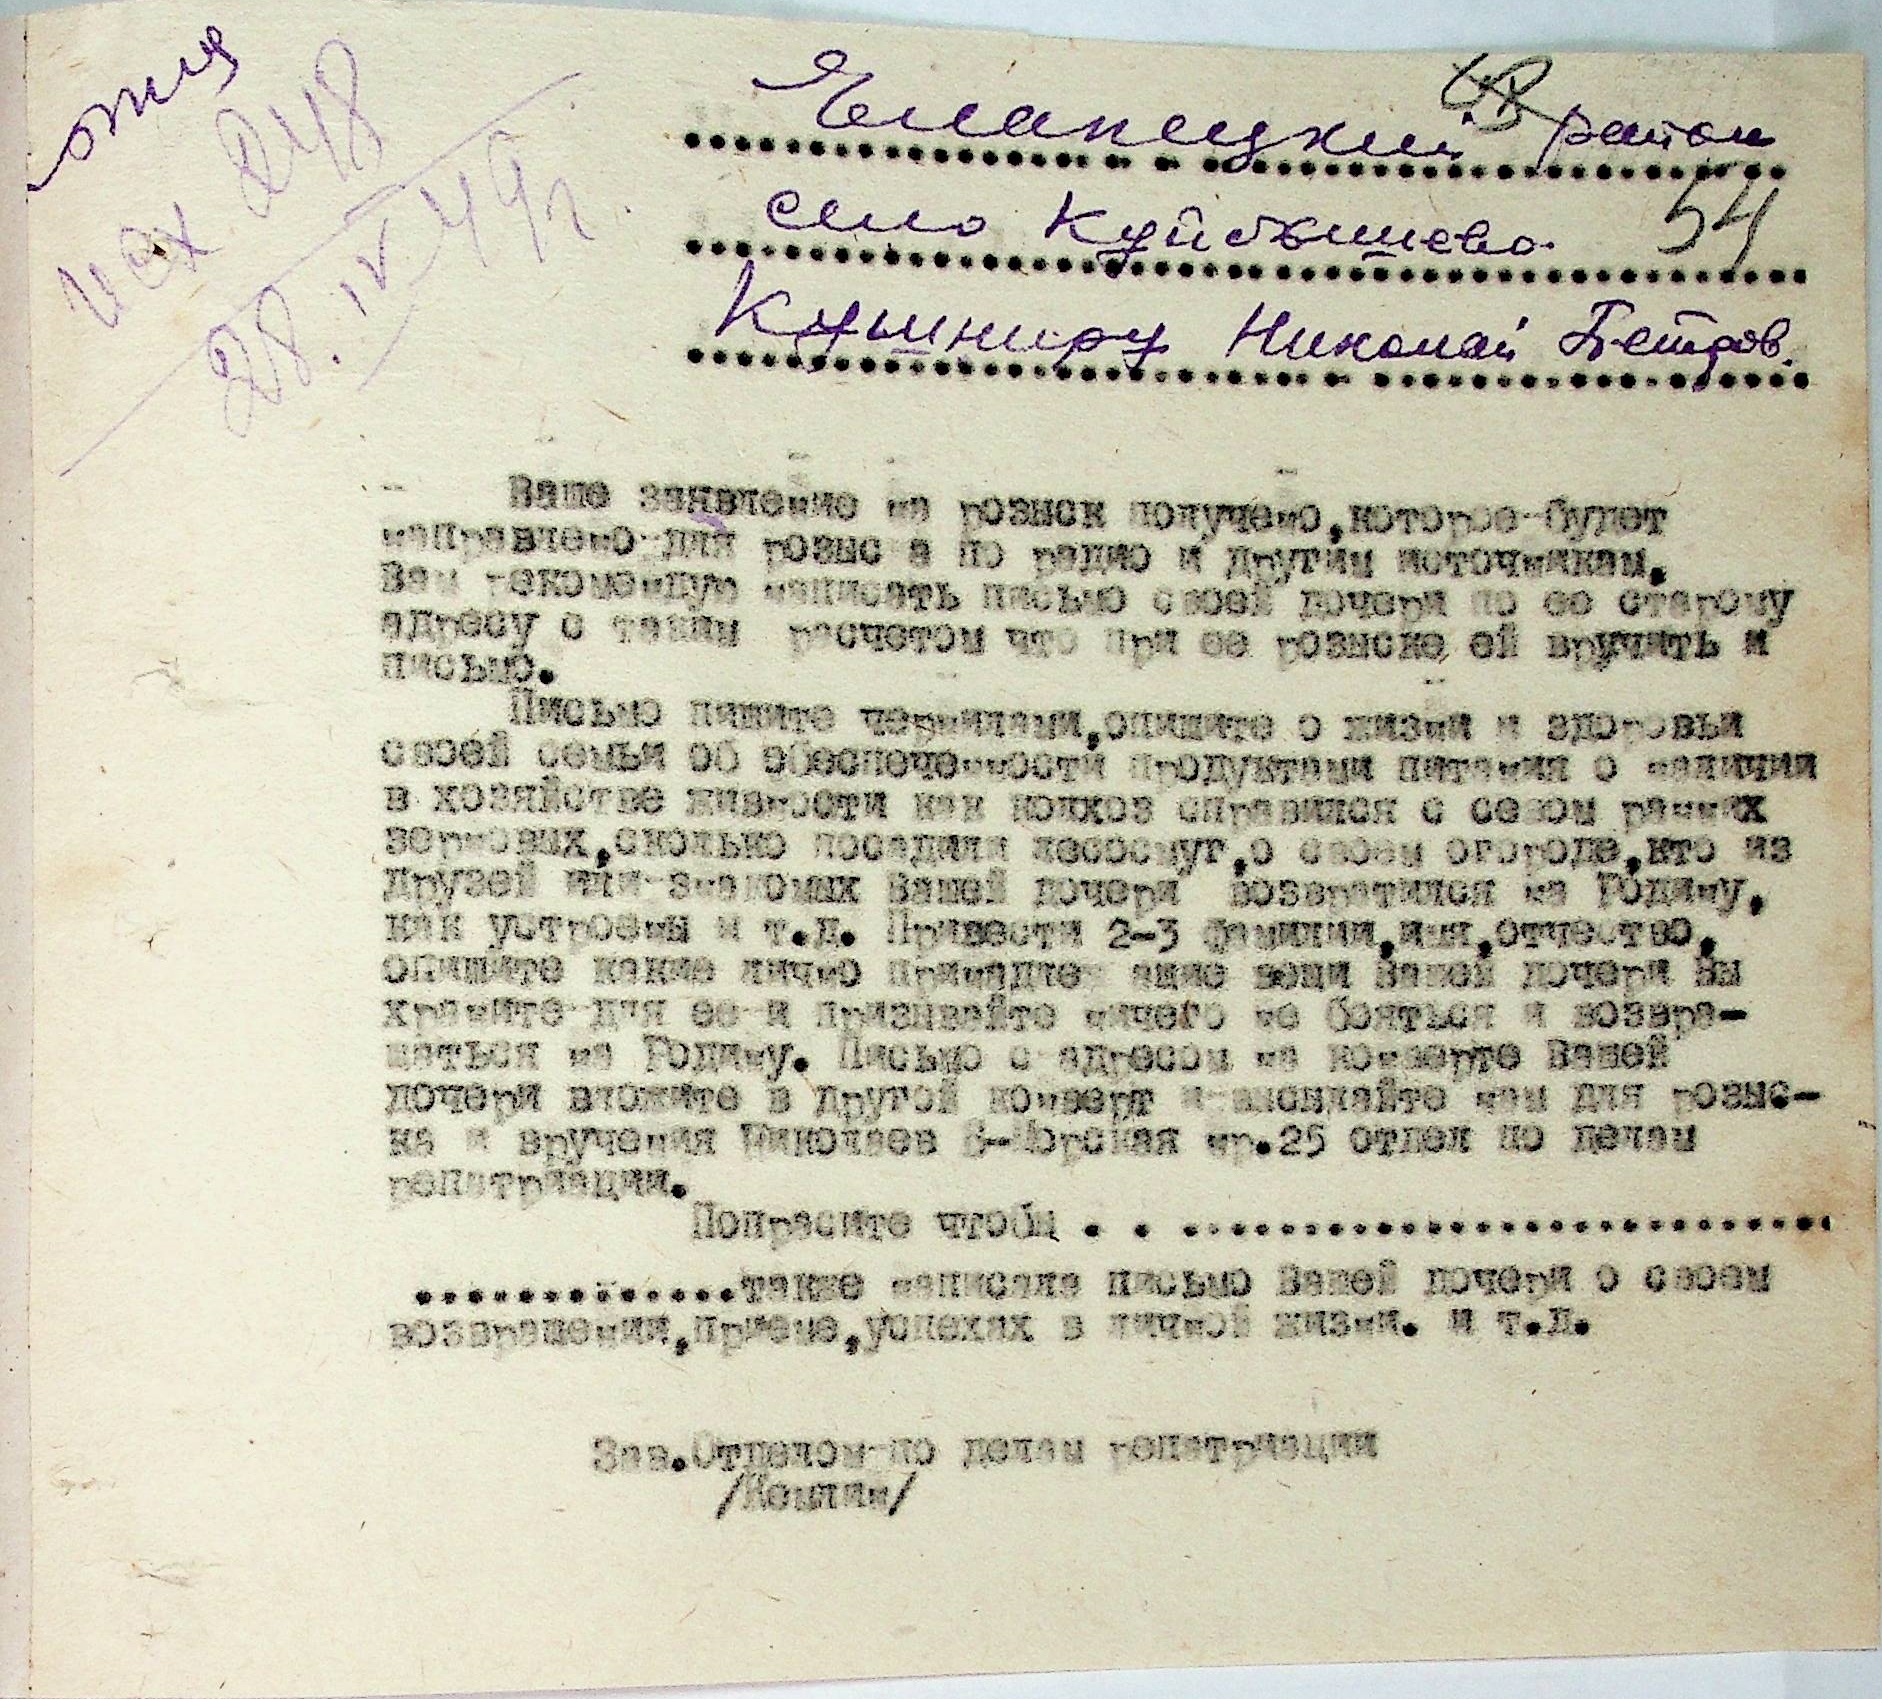 исх 248
28.IV 49г.
48
Еланецкий район
54
село Куйбышево.
Кушниру Николай Петров.
Ваше заявление на розыск получено,которое будет
направлено для розыс а по радио и другим источникам.
Вам рекомендую написать письмо своей дочери по ее старому
адресу с таким расчетом что при ее розыске ей вручить и
письмо.
Письмо пишите чернилами,опишите о жизни и здоровьи
своей семьи об обеспеченности продуктами питания о наличии
в хозяйстве живности как колхоз справился с севом ранних
зерновых,сколько посадили лесосмуг,о своем огороде,кто из
друзей или знакомых Вашей дочери возвратился на Родину,
как устроены и т.д. Привести 2-3 фамилии,имя,отчество,
опишите какие лично принадле ащие вещи Вашей дочери Вы
храните для ее и призывайте ничего не бояться и возвра-
щаться на Родину. Письмо с адресом на конверте Вашей
дочери вложите в другой конверт и высылайте нам для розыс-
ка и вручения Николаев В-Морская нр.25 отдел по делам
репатриации.
Попрасите чтобы . . ..............................
..............также написала письмо Вашей дочери о своем
возвращении,приеме,успехах в личной жизни. и т.д.
Зав.Отделом по делам репатриации